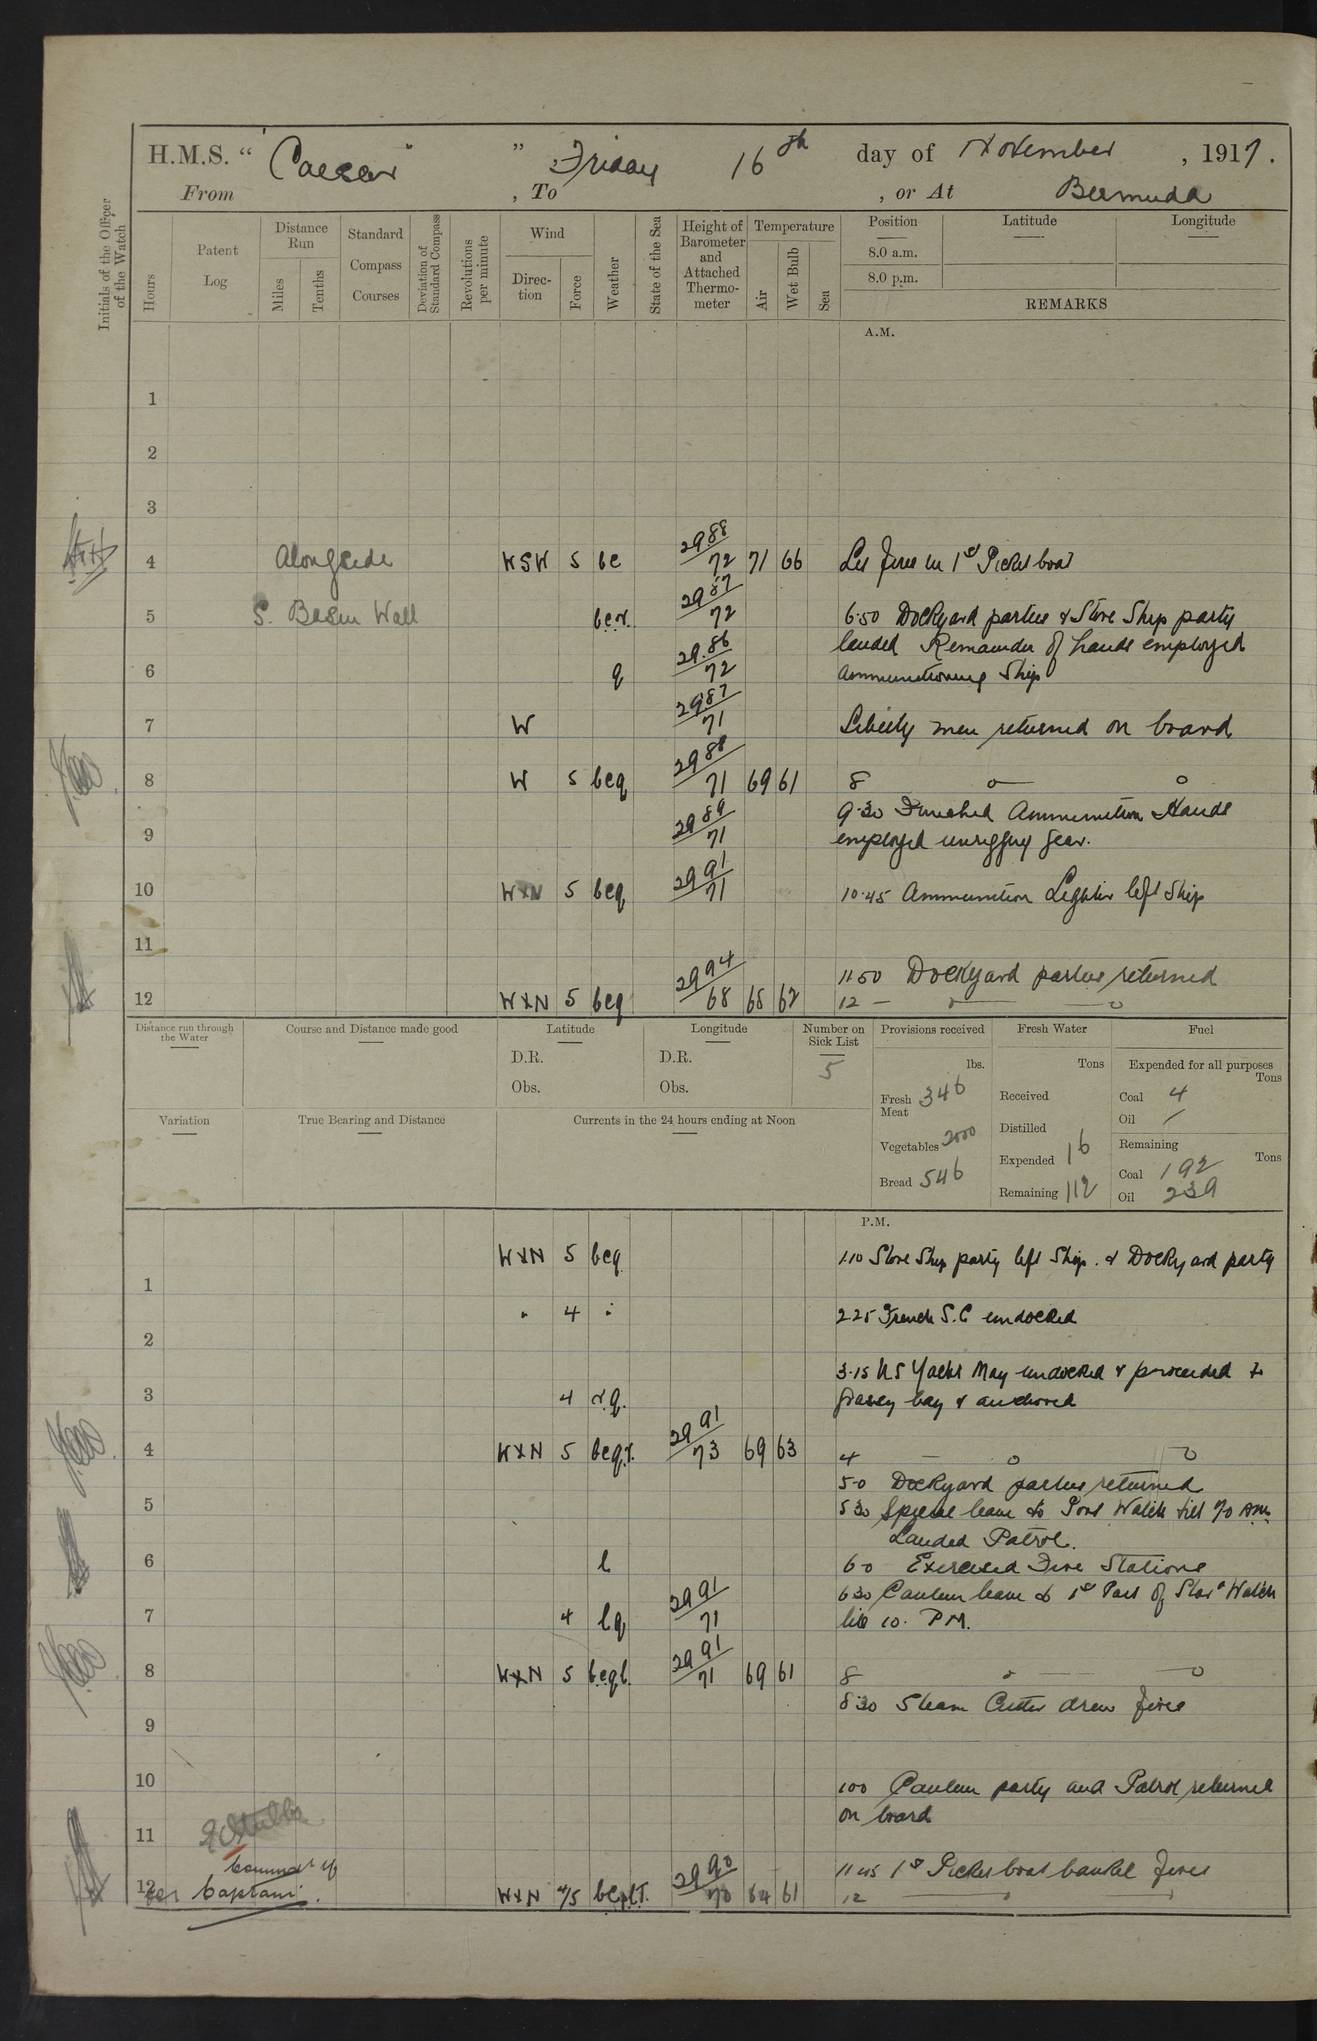 H.M.S. " Caesar " Friday 16th day of November, 1917.
From , To , or At Bermuda
Initials of the Officer of the Watch
Hours
Patent Log
Distance Run
Miles
Tenths
Standard Compass Courses
Deviation of Standard Compass
Revolutions per minute
Wind
Direc-tion
Force
Weather
State of the Sea
Height of Barometer and Attached Thermo-meter
Temperature
Air
Wet Bulb
Sea
Position
8.0 a.m.
8.0 p.m.
Latitude
Longitude
REMARKS
A.M.
1
2
3
4 Alongside WSW 5 bc 2988/72 71 66 Lit fires in 1st Picket boat
5 S. Basin Wall bcr. 2987/72 6.50 Dockyard parties & Store Ship party
landed Remainder of hands employed
6 q 29.86/72 Ammunitioning Ship
7 W 2987/71 Liberty men returned on board
8 W 5 bcq 2988/71 69 61 8
9.30 Finished Ammunition Hands
9 2989/71 employed unrigging gear.
10 WXN 5 bcq 2991/71 10.45 Ammunition Lighter left Ship
11
11.50 Dockyard parties returned
12 WXN 5 bcq 2994/68 68 62 12
Distance run through the Water
Course and Distance made good
Latitude
D.R.
Obs.
Longitude
D.R.
Obs.
Number on Sick List
5
Provisions received
lbs.
Fresh Meat 346
Vegetables 2000
Bread 546
Fresh Water
Tons
Received
Distilled
Expended 16
Remaining 112
Fuel
Expended for all purposes
Tons
Coal 4
Oil /
Remaining
Tons
Coal 192
Oil 239
Variation
True Bearing and Distance
Currents in the 24 hours ending at Noon
P.M.
1 WXN 5 bcq 1.10 Store Ship party left Ship. & Dockyard party
2 " 4 " 2.25 French S.C undocked
3.15 US Yacht May undocked & proceeded to
3 4 r.q. Grassy bay & anchored
4 WXN 5 bcq.r. 2991/73 69 63 4
5.0 Dockyard parties returned
5 5.30 Special leave to Port Watch till 7.0 AM.
Landed Patrol.
6 l 6.0 Exercised Fire Stations
6.30 Canteen leave to 1st Part of Star'd Watch
7 4 lq 2991/71 till 10. P.M.
8 WXN 5 bcql. 2991/71 69 61 8
8.30 Steam Cutter drew fires
9
10 10.0 Canteen party and Patrol returned
on board
11
Command'r
11.45 1st Picket boat banked fires
12 for Captain. WXN 4/5 2990/70 64 61 12